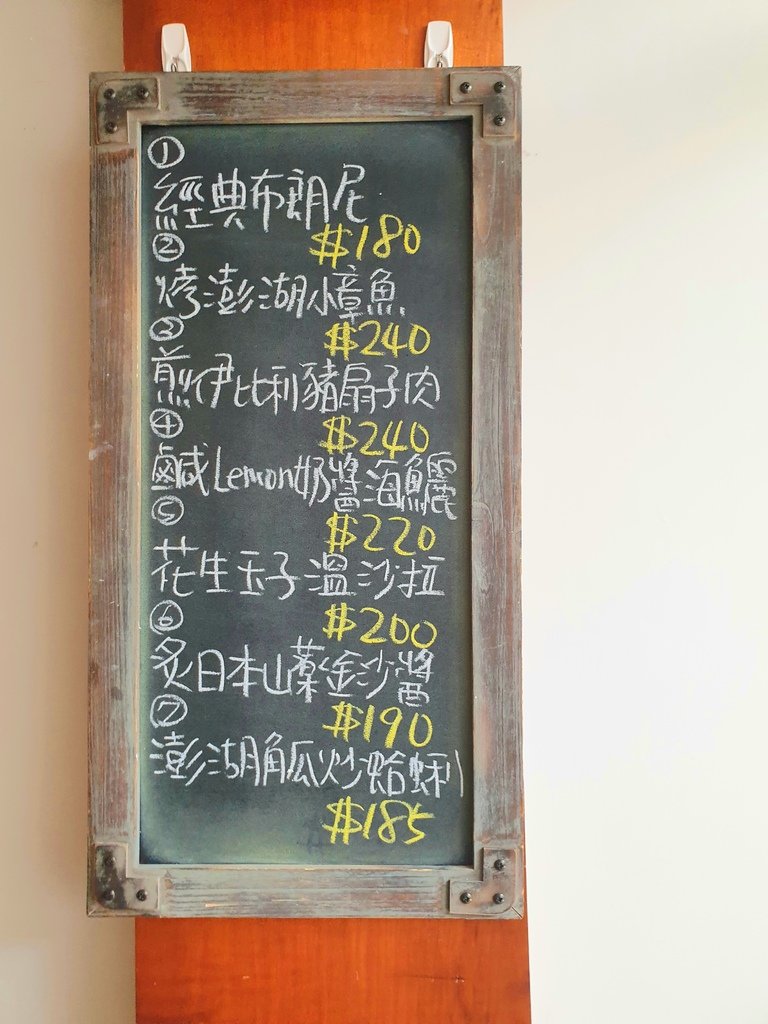 ①
經典布朗尼
$180
②
烤澎湖小章魚
$240
③
煎伊比利豬扇子肉
$240
④
鹹Lemon奶醬海鱺
$220
⑤
花生玉子溫沙拉
$200
⑥
炙日本山藥金沙醬
$190
⑦
澎湖角瓜炒蛤蜊
$185